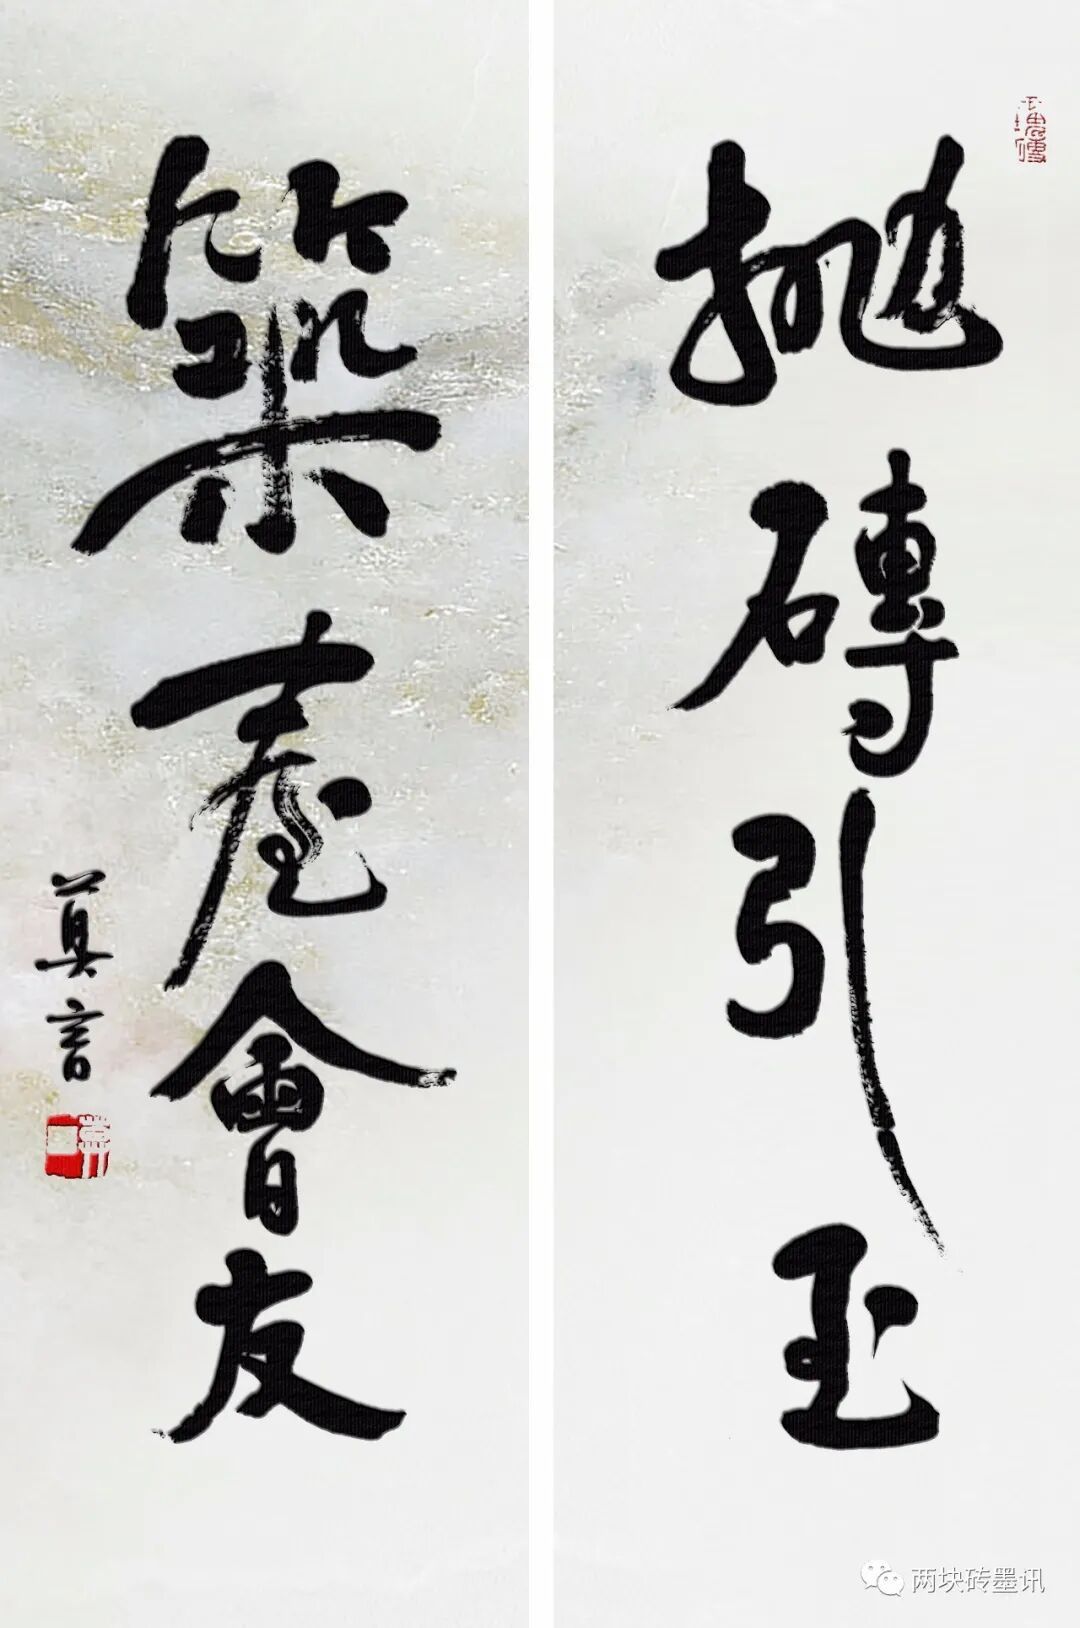 抛磚引玉
築臺會友
莫言
两块砖墨讯